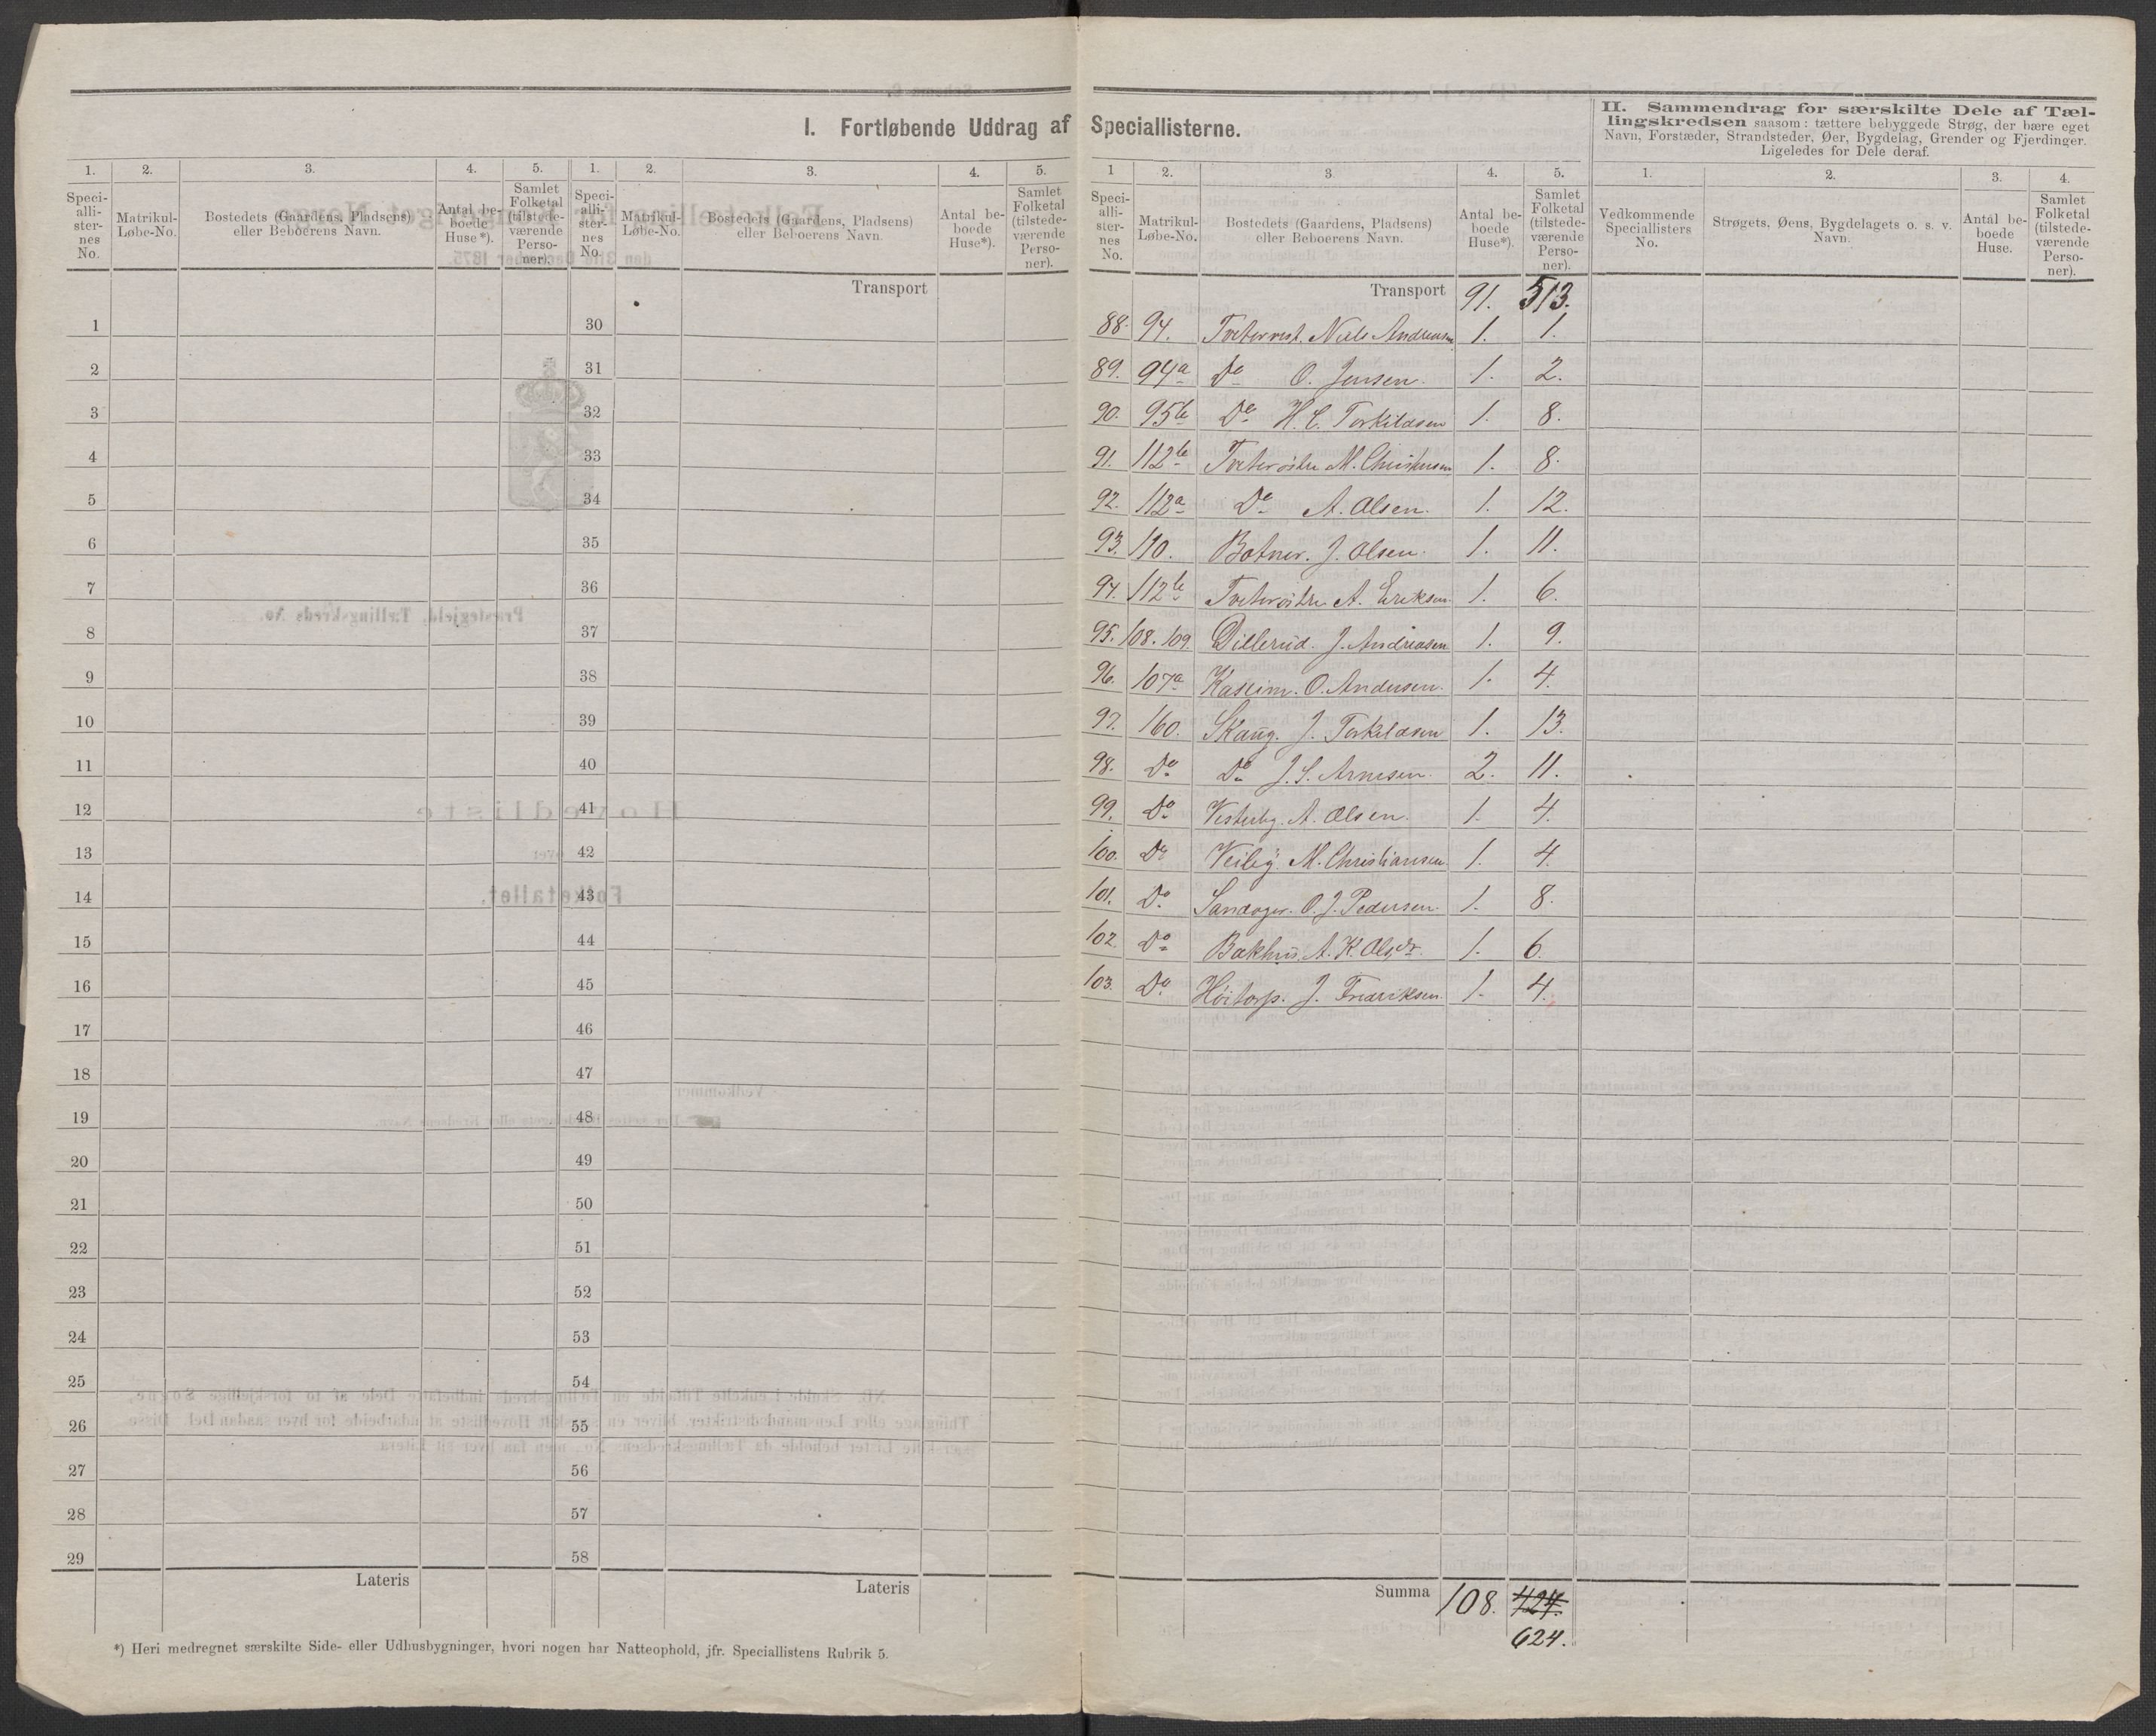 I. Fortløbende Uddrag af Speciallisterne.
II. Sammendrag for særskilte Dele af Tæl-
lingskredsen saasom: tættere bebyggede Strøg, der bære eget
Navn, Forstæder, Strandsteder, Øer, Bygdelag, Grender og Fjerdinger.
Ligeledes for Dele deraf.
1. 2. 3. 4. 5. 1. 2. 3. 4. 5. 1 2. 3 4. 5. 1. 2. 3. 4.
Speci-
alli-
ster-
nes
No.
Matrikul-
Løbe-No.
Bostedets (Gaardens, Pladsens)
eller Beboerens Navn.
Antal be-
boede
Huse*).
Samlet
Folketal
(tilstede-
værende
Perso-
ner).
Speci-
alli-
ster-
nes
No.
Matrikul-
Løbe-No.
Bostedets (Gaardens, Pladsens)
eller Beboerens Navn.
Antal be-
boede
Huse*).
Samlet
Folketal
(tilstede-
værende
Perso-
ner).
Speci-
alli-
ster-
nes
No.
Matrikul-
Løbe-No.
Bostedets (Gaardens, Pladsens)
eller Beboerens Navn.
Antal be-
boede
Huse*).
Samlet
Folketal
(tilstede-
værende
Perso-
ner).
Vedkommende
Speciallisters
No.
Strøgets, Øens, Bygdelagets o. s. v.
Navn.
Antal be-
boede
Huse.
Samlet
Folketal
(tilstede-
værende
Perso-
ner).
Transport
Transport 91. 513.
1 30 88. 94. Tveter vest. Niels Andreasen 1. 1.
2 31 89. 94a Do O. Jensen. 1. 2.
3 32 90. 95b Do H. C. Torkildsen 1. 8.
4 33 91. 112b Tveter östre M. Christensen 1. 8.
5 34 92. 112a Do A. Olsen. 1. 12.
6 35 93. 110. Botner. J. Olsen. 1. 11.
7 36 94. 112b Tveter östre A. Eriksen. 1. 6.
8 37 95. 108. 109. Dillerud. J. Andreasen 1. 9.
9 38 96. 107a Kasein. O. Andersen. 1. 4.
10 39 97. 160. Skaug. J. Torkildsen 1. 13.
11 40 98. Do Do J. S. Arnesen. 2. 11.
12 41 99. Do Vesterby. A. Olsen. 1. 4.
13 42 100. Do Veiby. M. Christiansen. 1. 4.
14 43 101. Do Sandager. O. J. Pedersen. 1. 8.
15 44 102. Do Bakhus. A. K. Olsdr. 1. 6.
16 45 103. Do Höitorp. J. Fredriksen. 1. 4.
17 46
18 47
19 48
20 49
21 50
22 51
23 52
24 53
25 54
26 55
27 56
28 57
29 58
Lateris Lateris Summa 108. 424.
624.
*) Heri medregnet særskilte Side- eller Udhusbygninger, hvori nogen har Natteophold, jfr. Speciallistens Rubrik 5.